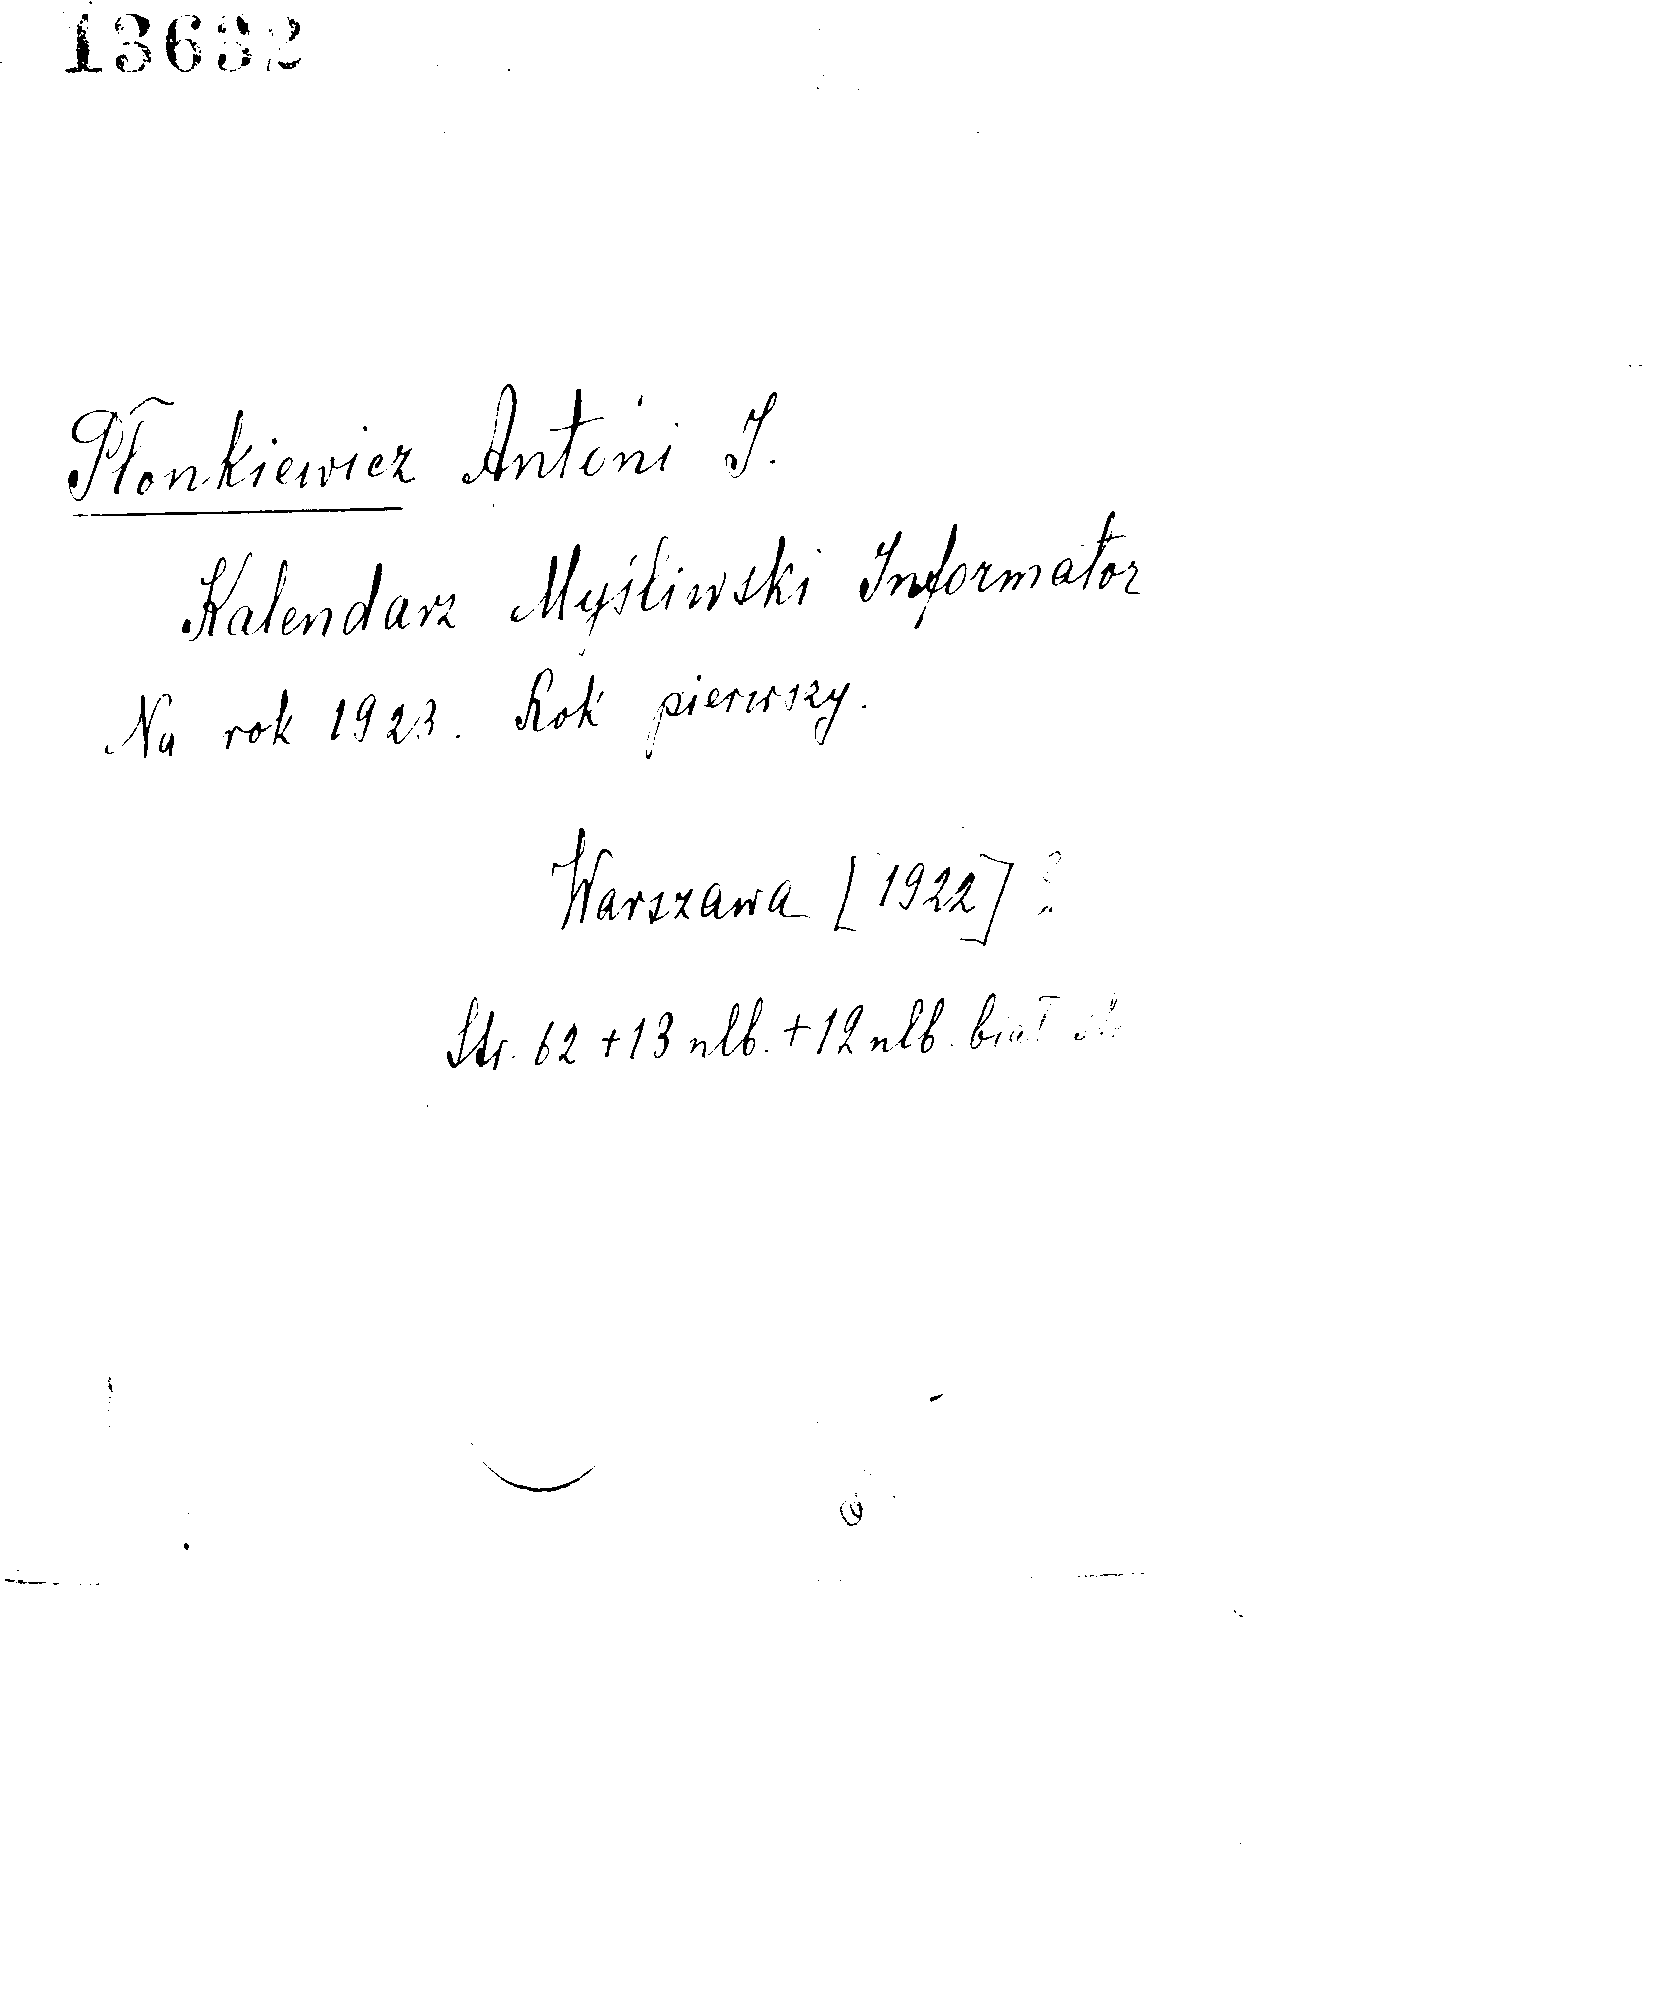 13632
Płonkiewicz Antoni J.
Kalendarz Myśliwski Informator
Na rok 1923. Rok pierwszy.
Warszawa [1922] ?
Str. 62 + 13 nlb. + 12 nlb. biał